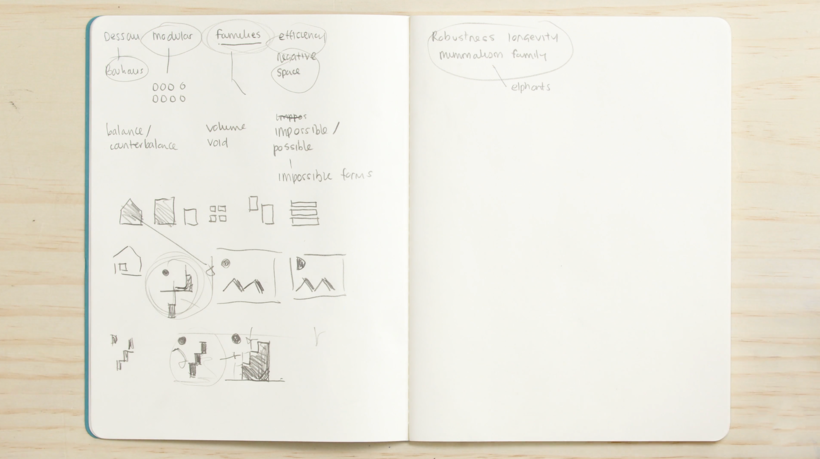 Dessau
modular
families
efficiency
Bauhaus
negative
space
balance/
counterbalance
volume
void
impossible/
possible
impossible forms
Robustness longevity
family